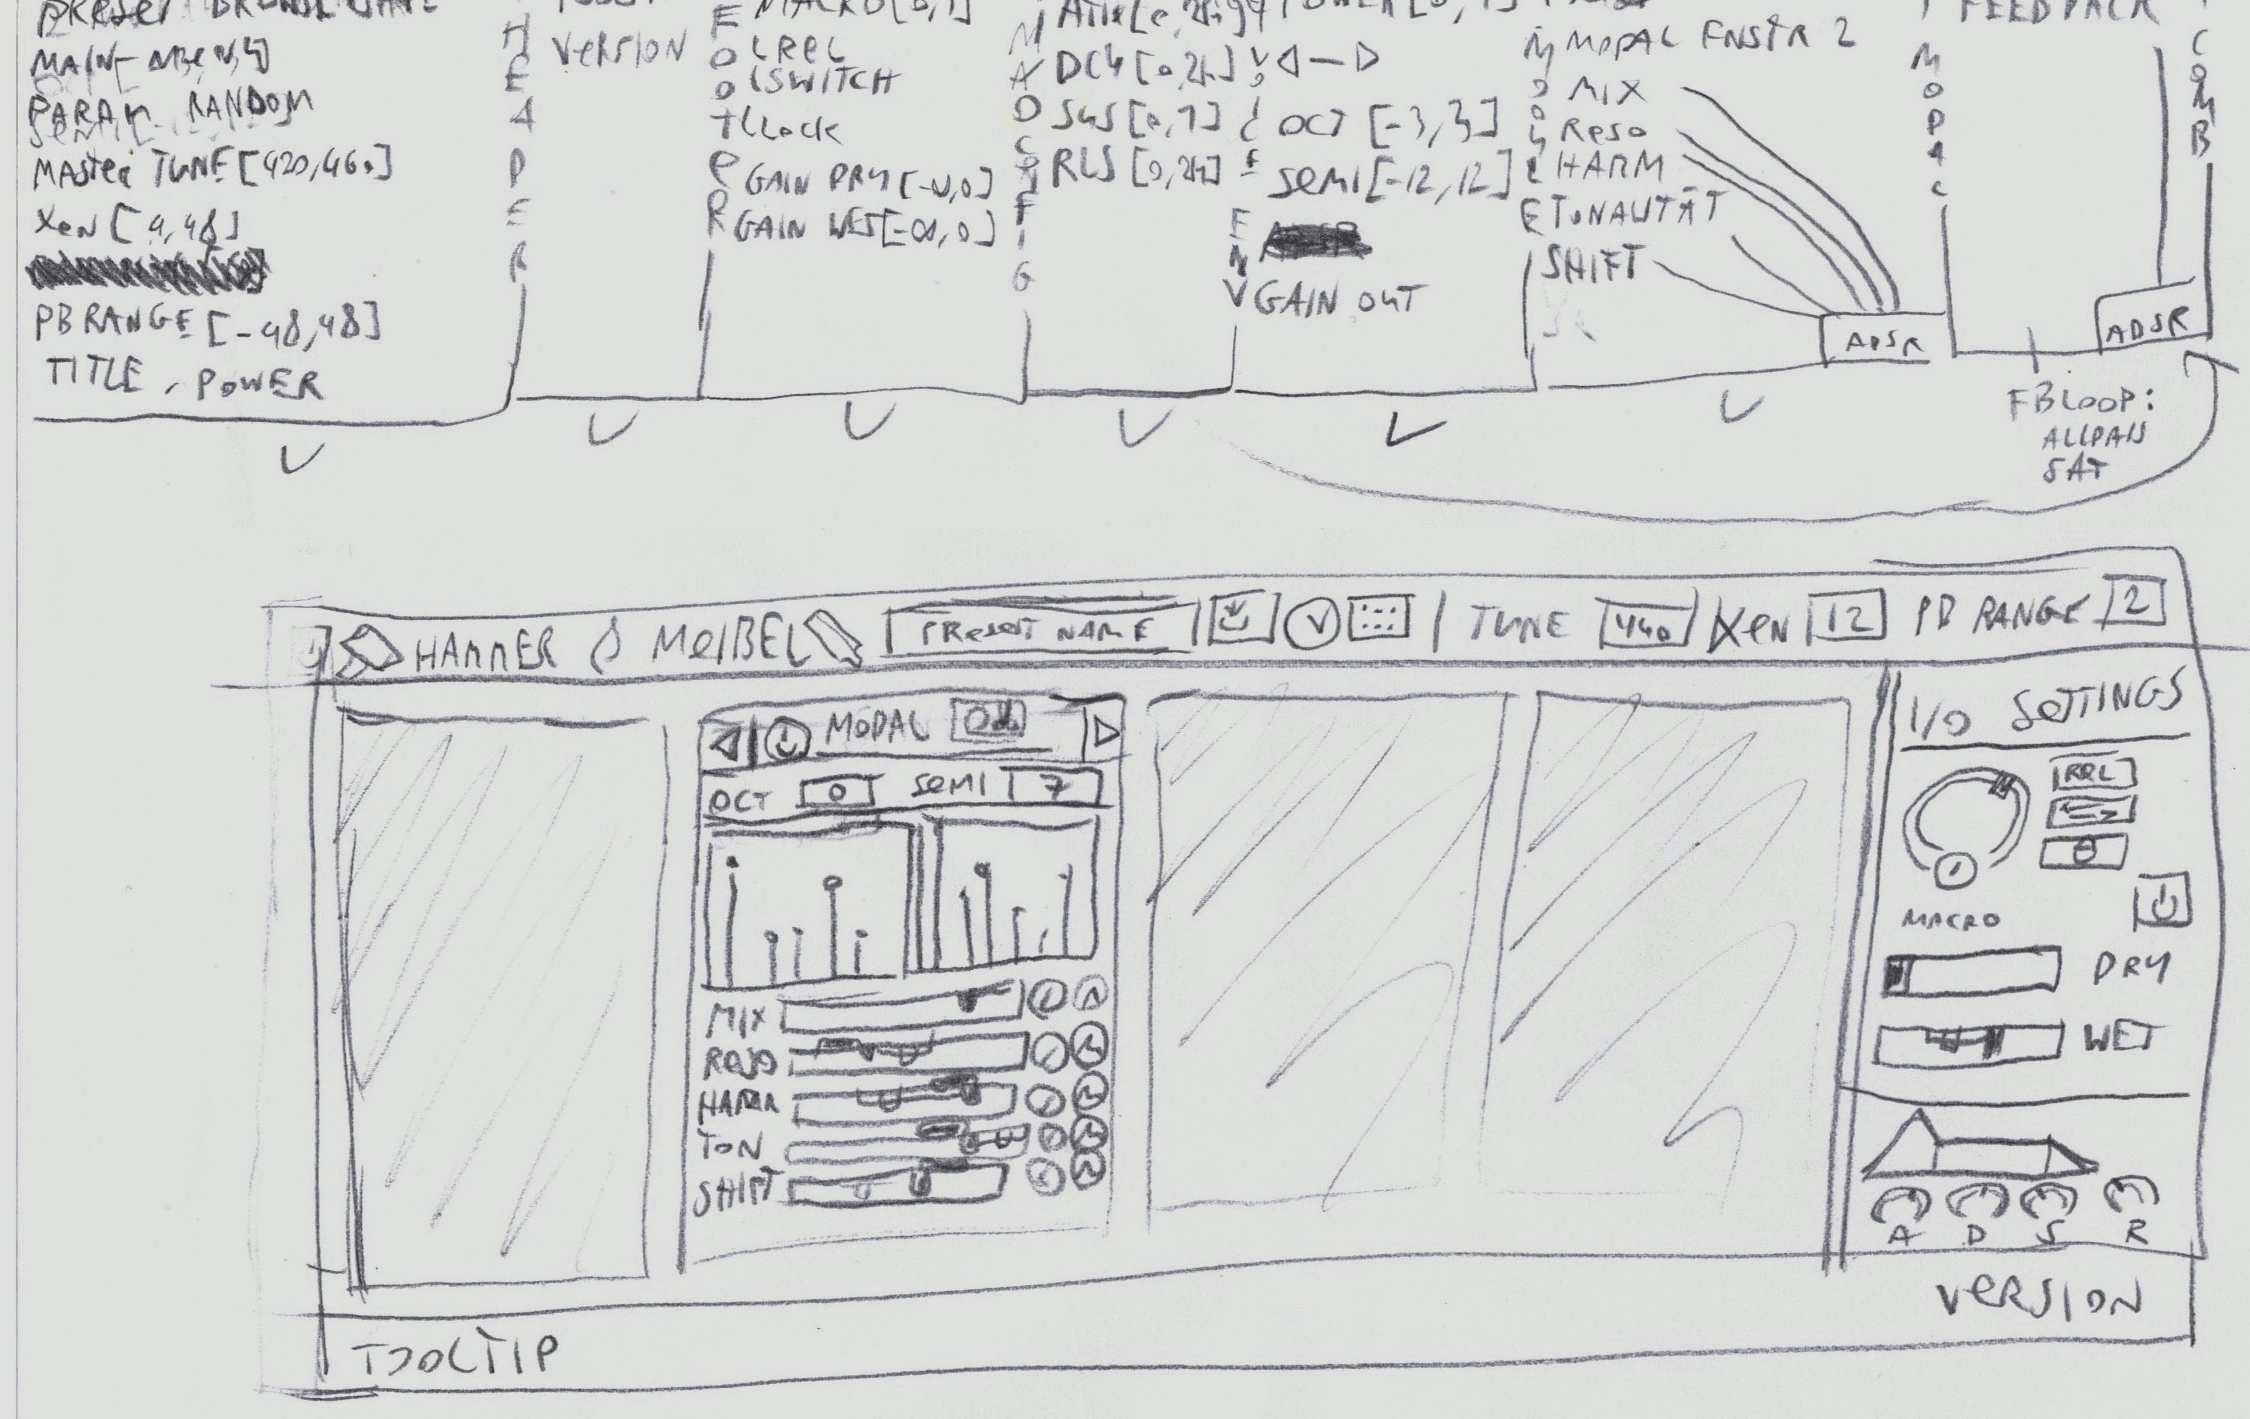 PARAM RANDOM
MASTER TUNE [420,460]
XEN [4,48]
PB RANGE [-48,48]
TITLE, POWER
HEADER
VERSION
MACRO [0,1]
LREL
LSWITCH
LLOCK
GAIN DRY [-∞,0]
GAIN WET [-∞,0]
FOOTER
DCY [0,2k]
SUS [0,1]
RLS [0,2k]
OCT [-3,3]
SEMI [-12,12]
GAIN OUT
MODAL FNSTR 2
MIX
RESO
HARM
TONALITÄT
SHIFT
ADSR
MODAL
FEEDBACK
ADSR
COMB
FBLOOP:
ALLPASS
SAT
HAMMER & MEIßEL
PRESET NAME
TUNE 440 XEN 12 PB RANGE 2
MODAL
OCT 0 SEMI 7
MIX
RESO
HARM
TON
SHIFT
I/O SETTINGS
REL
MACRO
DRY
WET
A D S R
VERSION
TOOLTIP